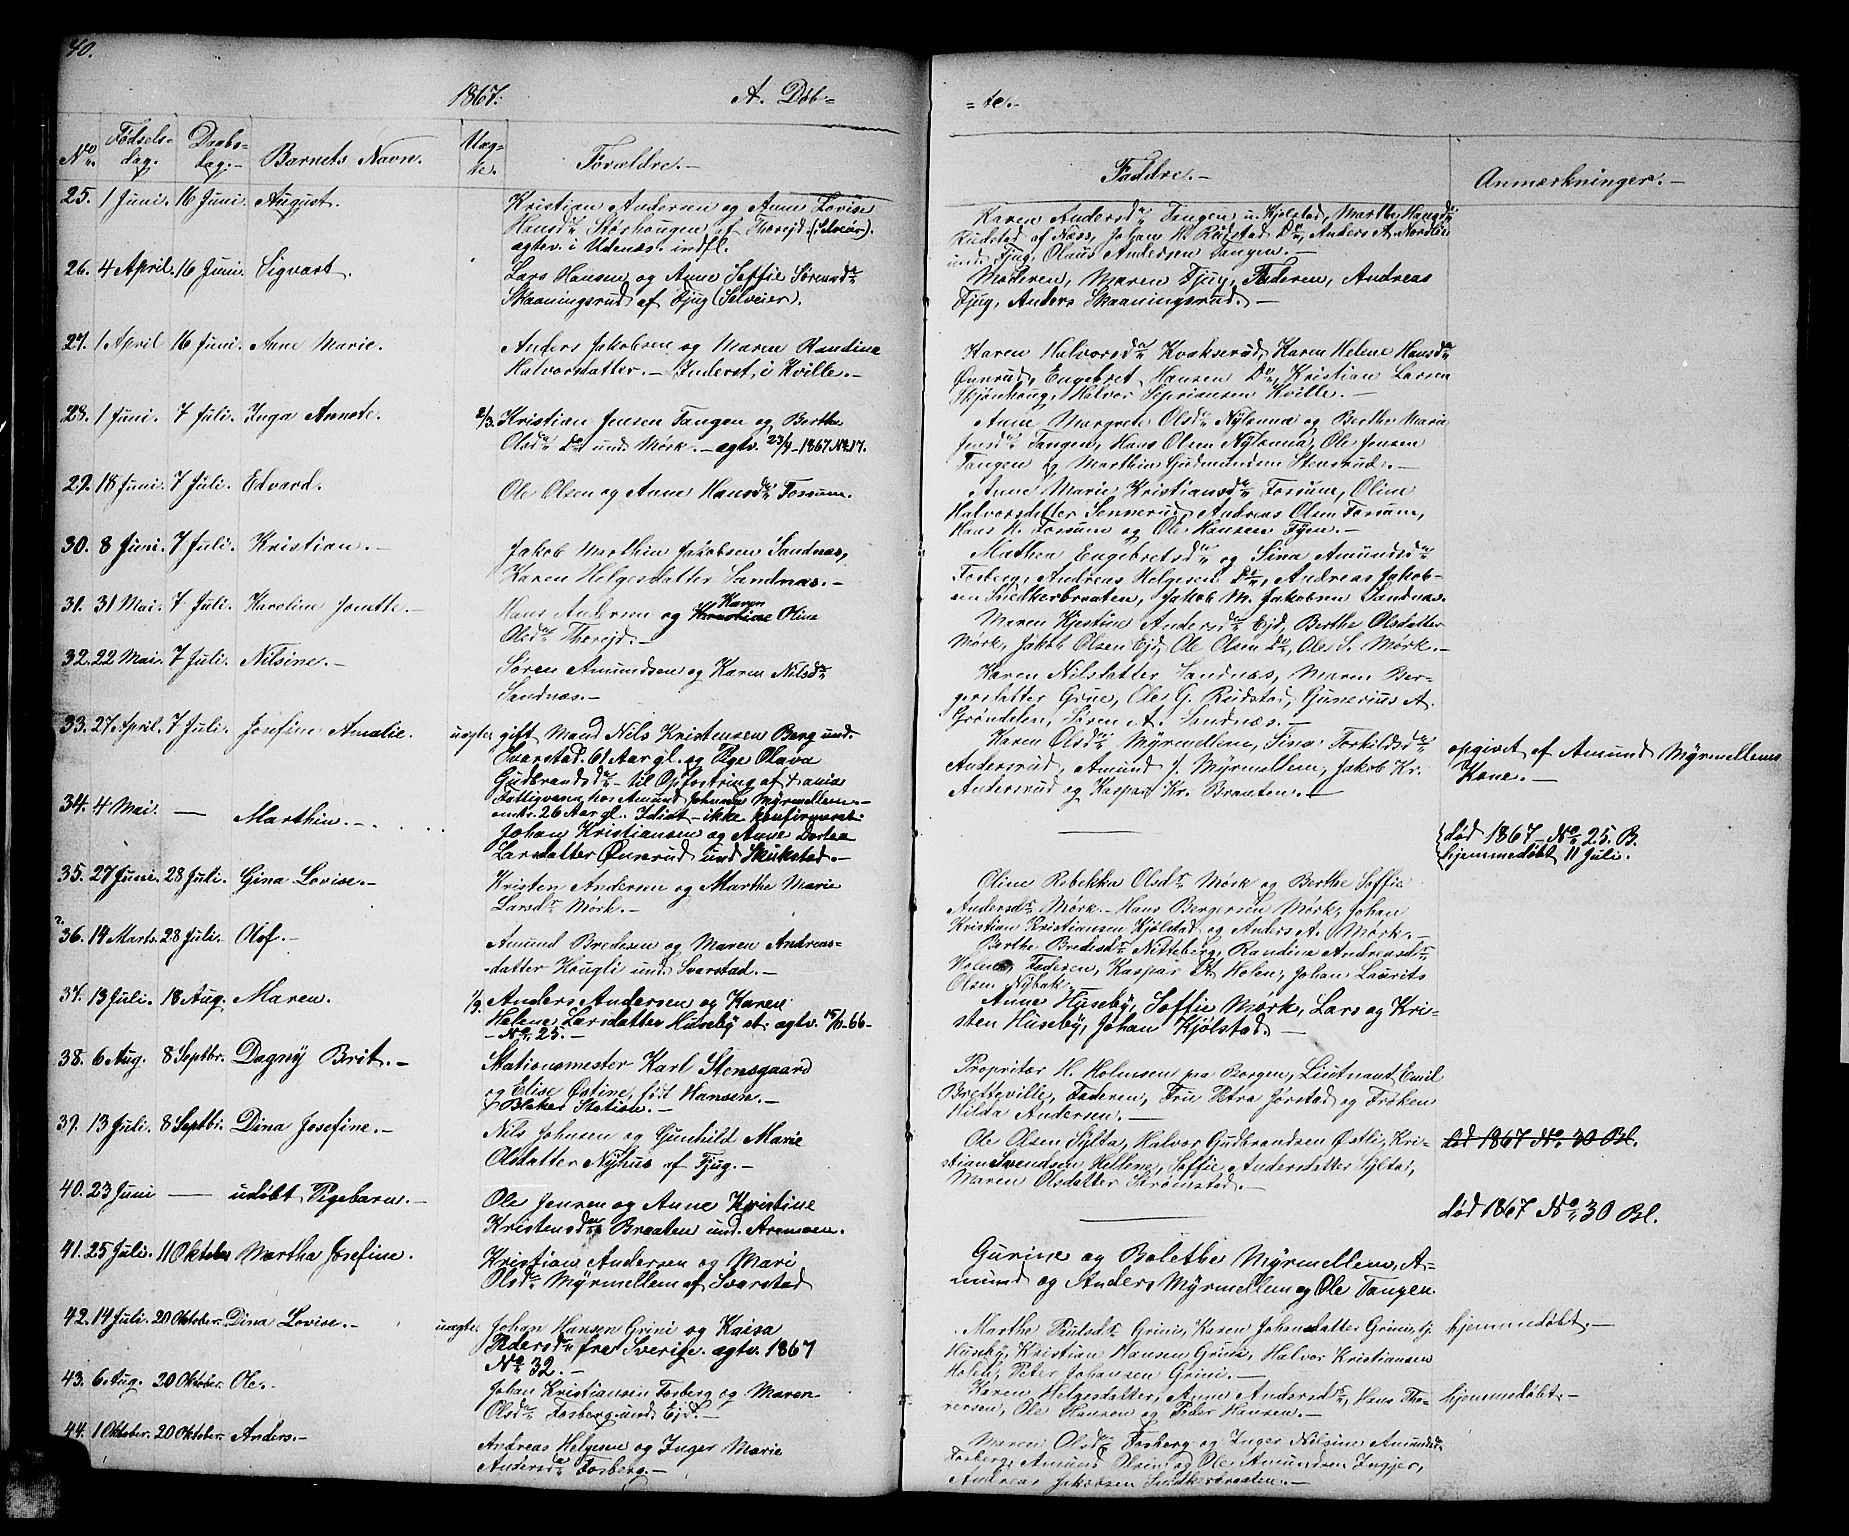 40.
1867. A. Døb=
=te.-
No. Fødsels-dag. Daabs-dag.- Barnets Navn. Uæg-te. Forældre.- Faddre.- Anmærkninger.-
25. 1 Juni. 16 Juni. August.
Kristian Andersen og Anne Lovise
Hansdr Størhougen af Thorejd (Selveier).
agtv. i Udenæs. indfl.
Karen Andersdr Tangen u. Kjølstad, Marthe Hansdr
Rudstad af Næss, Johan H. Rudstad Do, Anders A. Nordlie
und. Fjug, Olaus Andersen Tangen.-
26. 4 April. 16 Juni. Sigvart.
Lars Hansen og Anne Soffie Sørensdr
Skaaningsrud af Fjug (Selveier).
Moderen, Maren Fjug, Faderen, Andreas
Fjug, Anders Skaaningsrud.-
27. 1 April 16 Juni. Anne Marie.
Anders Jakobsen og Maren Randine
Halvorsdatter.- Inderst, i Kville.-
Karen Halvorsdr Kvakserud, Karen Helene Hansdr
Ønsrud, Engebret Hansen Do, Kristian Larsen
Skjønhoug, Halvor Sepriansen Kville.-
28. 1 Juni. 7 Juli. Inga Annete.
2/3. Kristian Jensen Tangen og Berthe
Olsdr Do und. Mørk.- agtv. 23/4-1867 No 17.
Anne Margrete Olsdr Nylænna og Berthe Marie
Jensdr Tangen, Hans Olsen Nylænna, Ole Jensen
Tangen og Marthin Gudmundsen Stensrud.-
29. 18 Juni. 7 Juli. Edvard.
Ole Olsen og Anne Hansdr Forsum.
Anne Marie Kristiansdr Forsum, Oline
Halvorsdatter Sennerud, Andreas Olsen Forsum,
Hans H. Forsum og Ole Hansen Fjen.-
30. 8 Juni. 7 Juli. Kristian.-
Jakob Marthin Jakobsen Sandnæs,
Karen Helgesdatter Sandnæs.-
Mathea Engebretsdr og Sina Amundsdr
Fosberg, Andreas Helgesen Do, Andreas Jakob-
sen Snekkerbraaten, Jakob M. Jakobsen Sandnæs.
31. 31 Mai. 7 Juli. Karoline Jonette.-
Karen
Hans Andersen og Kirstine Oline
Olsdr Thorejd.-
Maren Kjestine Andersdr Ejd, Berthe Olsdatter
Mørk, Jakob Olsen Ejd, Ole Olsen Do, Ole S. Mørk.-
32. 22 Mai. 7 Juli. Nilsine.-
Søren Amundsen og Karen Nilsdr
Sandnæs.-
Karen Nilsdatter Sandnæs, Maren Ber-
gersdatter Grue, Ole G. Rudstad, Gunerius A.
Grøndalen, Søren A. Sandnæs.-
33. 27 April. 7 Juli. Josefine Amalie.
uægte gift Mand Nils Kristensen Berg und.
Svarstad. 61 Aar gl. og Pige Olava
Gudbrandsdr - til Opfostring af
Fattigvæs. hos Amund Johnsen Myrmellem.-
omtr. 26 Aar gl. Idiot - ikke konfirmeret.
Karen Olsdr Myrmellem, Sina Torkildsdr
Andersrud, Amund J. Myrmellem, Jakob Kr.
Andersrud og Kaspar Kr. Braaten.-
opgivet af Amund Myrmellems
Kone.-
34. 4 Mai. - Marthin.-
Johan Kristiansen og Anne Dortea
Larsdatter Ønserud und Skukstad.-
død 1867 No 25. B.
hjemmedøbt 11 Juli.
35. 27 Juni. 28 Juli. Gina Lovise.-
Kristen Andersen og Marthe Marie
Larsdr Mørk.-
Oline Rebekka Olsdr Mørk og Berthe Soffie
Andersdr Mørk.- Hans Bergersen Mørk, Johan
Kristian Kristiansen Kjølstad og Anders A. Mørk.-
36. 14 Marts. 28 Juli. Olof.-
Amund Bredesen og Maren Andreas-
-datter Hougli und. Svarstad.-
Berthe Bredesdr Nitteberg, Randine Andreasdr
Holen, Faderen, Kaspar A. Holen, Johan Laurits
Olsen Nybak.
37. 13 Juli. 18 Aug. Maren.
1/9. Anders Andersen og Karen
Helene Larsdatter Huseby et. agtv. 15/10-66-
- No. 25.-
Anne Huseby, Soffie Mørk, Lars og Kri-
sten Huseby, Johan Kjølstad.-
38. 6 Aug. 8 Septbr. Dagny Brit.-
Stationsmester Karl Stensgaard
og Elise Østine, født Hansen.-
Blaker Station.-
Proprietær H. Holmsen paa Borgen, Liutnant Emil
Bretteville, Faderen, Fru Petra Jørstad og Frøken
Hilda Andersen.-
39. 13 Juli. 8 Septbr. Dina Josefine.-
Nils Johnsen og Gunhild Marie
Olsdatter Nyhus af Fjug.-
Ole Olsen Sylta, Halvor Gudbrandsen Østli, Kri-
stian Svendsen Hellene, Soffie Andersdatter Sylta,
Maren Olsdatter Strømstad.-
død 1867 No. 30 Bl.
40. 23 Juni - udøbt Pigebarn.-
Ole Jensen og Anne Kristine
Kristensdr Braaten und. Aremoen.
død 1867 No. 30 Bl.
41. 25 Juli. 11 Oktober Martha Josefine.
Kristian Andersen og Mari
Olsdr Myrmellem af Svarstad
Gurine og Bolethe Myrmellem, A-
mund og Anders Myrmellem og Ole Tangen
42. 14 Juli. 20 Oktober. Dina Lovise.-
uægte. Johan Hansen Grini og Kaisa
Pedersdr fra Sverige. agtv. 1867
No. 32.-
Marthe Paulsdr Grini, Karen Johansdatter Grini, ej.
Huseby, Kristian Hansen Grini, Halvor Kristiansen
Holen, Peter Johansen Grini.-
hjemmedøbt.-
43. 6 Aug. 20 Oktober. Ole.-
Johan Kristiansen Fosberg og Maren
Olsdr Fosberg und. Ejd.-
Karen Helgesdatter, Anne Andersdr, Hans Tho-
resen, Ole Hansen og Peder Hansen.-
hjemmedøbt.-
44. 1 Oktober. 20 Oktober. Anders.-
Andreas Helgesen og Inger Marie
Andersdr Fosberg.-
Maren Olsdr Fosberg og Inger Nilsine Amundsdr
Fosberg, Amund Olsen og Ole Amundsen Ingjer,
Andreas Jakobsen Snekkerbraaten.-